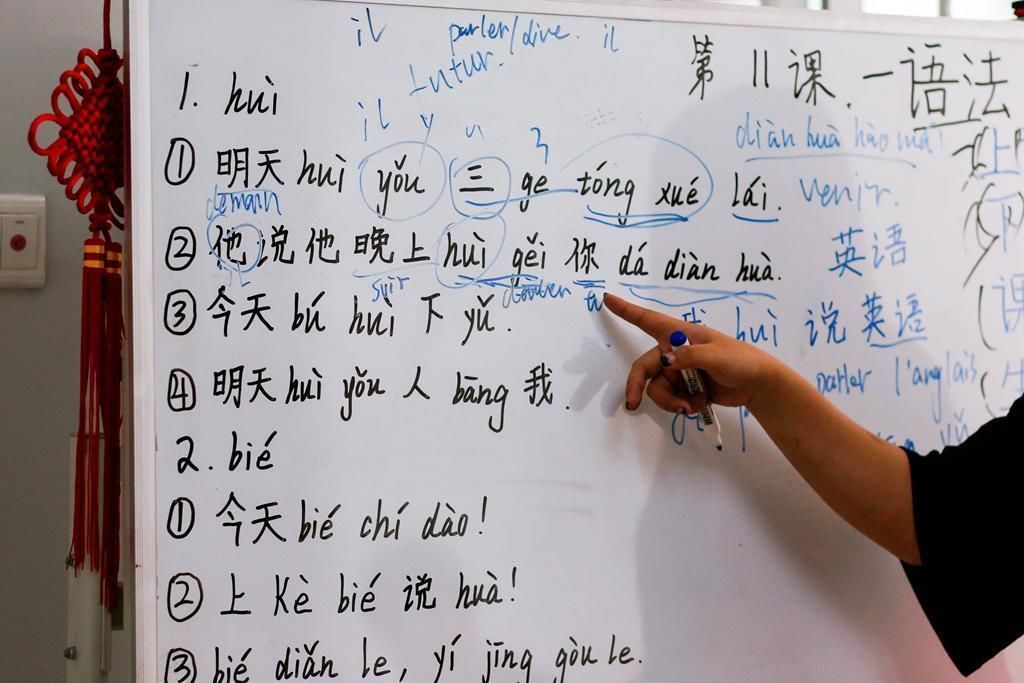 il parler/dire. il
futur.
第 11 课. 一语法
1. huì
il y
diàn huà hào mǎ
① 明天 huì yǒu 三 ge tóng xué lái. venir.
demain
② 他说他晚上 huì gěi 你 dá diàn huà. 英语
soir tu
③ 今天 bú huì 下 yǔ. 我 huì 说英语
④ 明天 huì yǒu 人 bāng 我. parler l'anglais
2. bié
① 今天 bié chí dào!
② 上 Kè bié 说 huà!
③ bié diǎn le, yí jīng gòu le.